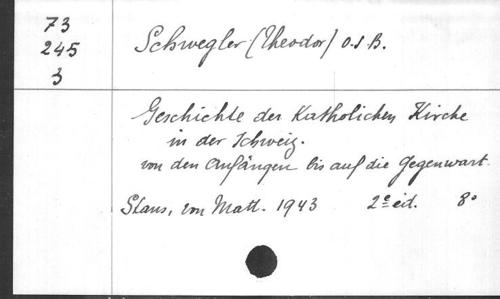 73
245
3
Schwegler (Theodor) O.S.B.
Geschichte der Katholichen Kirche
in der Schweiz.
von den Anfängen bis auf die Gegenwart.
Stans, von Matt. 1943 2e éd. 8°